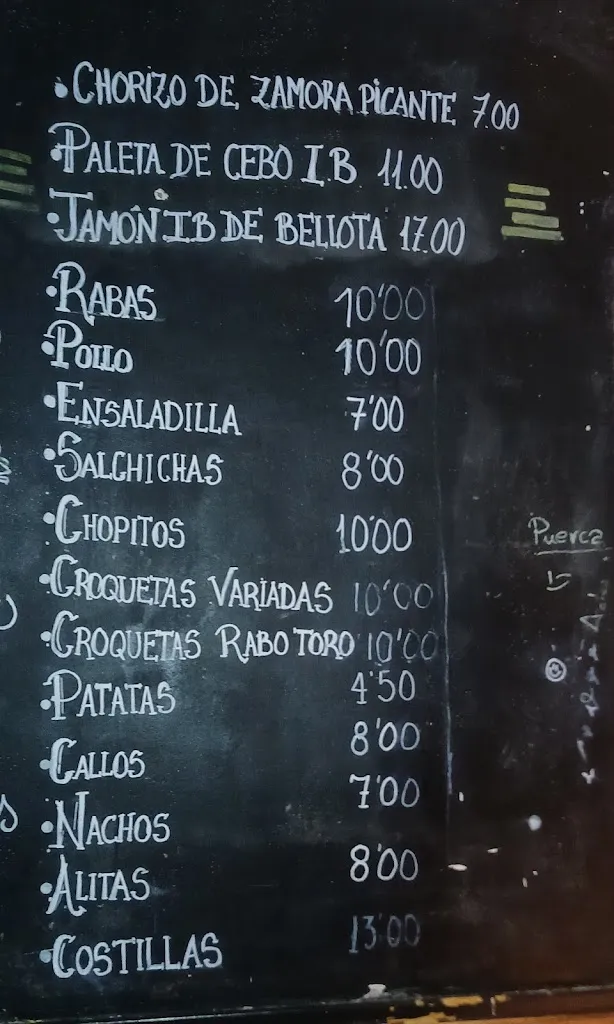 • CHORIZO DE ZAMORA PICANTE 7.00
• PALETA DE CEBO I.B 11.00
• JAMÓN IB DE BELLOTA 17.00
• RABAS 10'00
• POLLO 10'00
• ENSALADILLA 7'00
• SALCHICHAS 8'00
• CHOPITOS 10'00
• CROQUETAS VARIADAS 10'00
• CROQUETAS RABO TORO 10'00
• PATATAS 4'50
• CALLOS 8'00
• NACHOS 7'00
• ALITAS 8'00
• COSTILLAS 13'00
Puerca